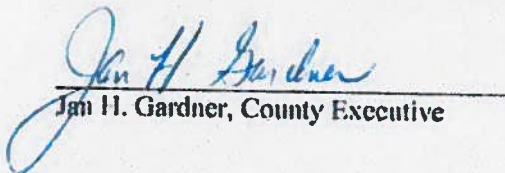 Jan H. Gardner
Jan H. Gardner, County Executive